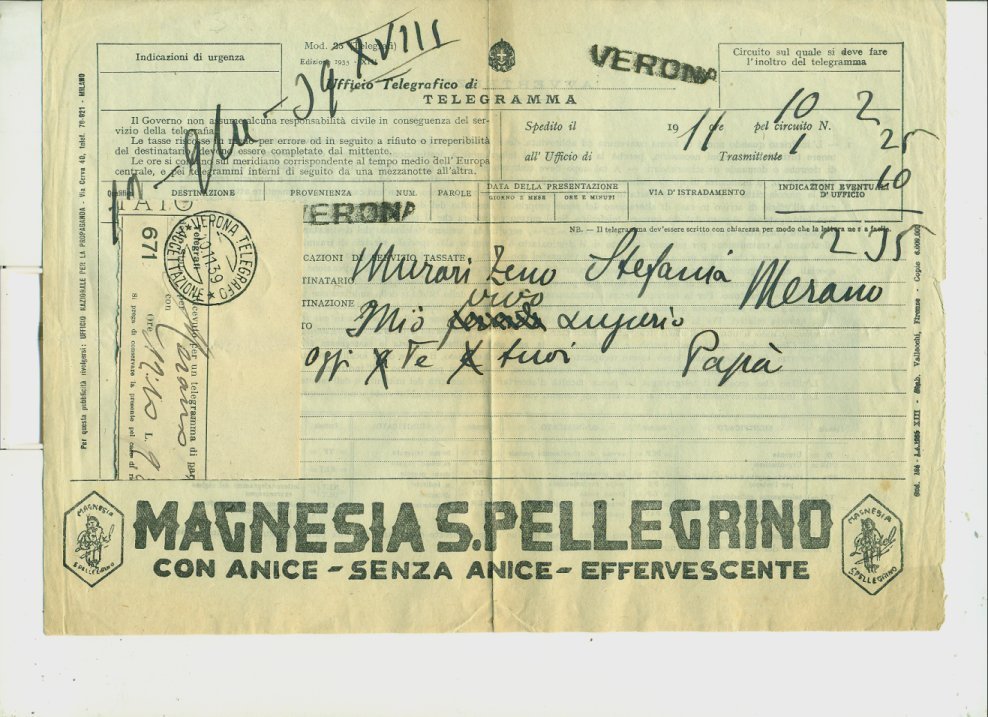 Indicazioni di urgenza
Mod. 25 (Telegrafi)
Edizione 1935
Ufficio Telegrafico di
VERONA
Circuito sul quale si deve fare
l'inoltro del telegramma
TELEGRAMMA
39 XVIII
Il Governo non assume alcuna responsabilità civile in conseguenza del ser-
vizio della telegrafia.
Le tasse riscosse per errore od in seguito a rifiuto o irreperibilità
del destinatario devono essere completate dal mittente.
Le ore si contano sul meridiano corrispondente al tempo medio dell'Europa
centrale, e pei telegrammi interni di seguito da una mezzanotte all'altra.
Spedito il 19 11 ore 10 pel circuito N. 2
all'Ufficio di Trasmittente 1 25
10
295
DESTINAZIONE
PROVENIENZA
NUM.
PAROLE
DATA DELLA PRESENTAZIONE
GIORNO E MESE
ORE E MINUTI
VIA D'ISTRADAMENTO
INDICAZIONI EVENTUALI
D'UFFICIO
VERONA
NB. — Il telegramma dev'essere scritto con chiarezza per modo che la lettura ne sia facile.
CAZIONI DI SERVIZIO TASSATE
TINATARIO Murari Zeno Stefania
TINAZIONE Merano
TO Mio vivo augurio
oggi a Te e tuoi Papà
671
VERONA TELEGRAFO
ACCETTAZIONE
10.11.39
Telegrafi
cevuto per un telegramma di
per Merano
con
lire
Si prega di conservare la presente pel caso di
Per questa pubblicità rivolgersi: UFFICIO NAZIONALE PER LA PROPAGANDA - Via Cerva 40, telef. 76-021 - MILANO
MAGNESIA
S.PELLEGRINO
MAGNESIA S.PELLEGRINO
CON ANICE - SENZA ANICE - EFFERVESCENTE
MAGNESIA
S.PELLEGRINO